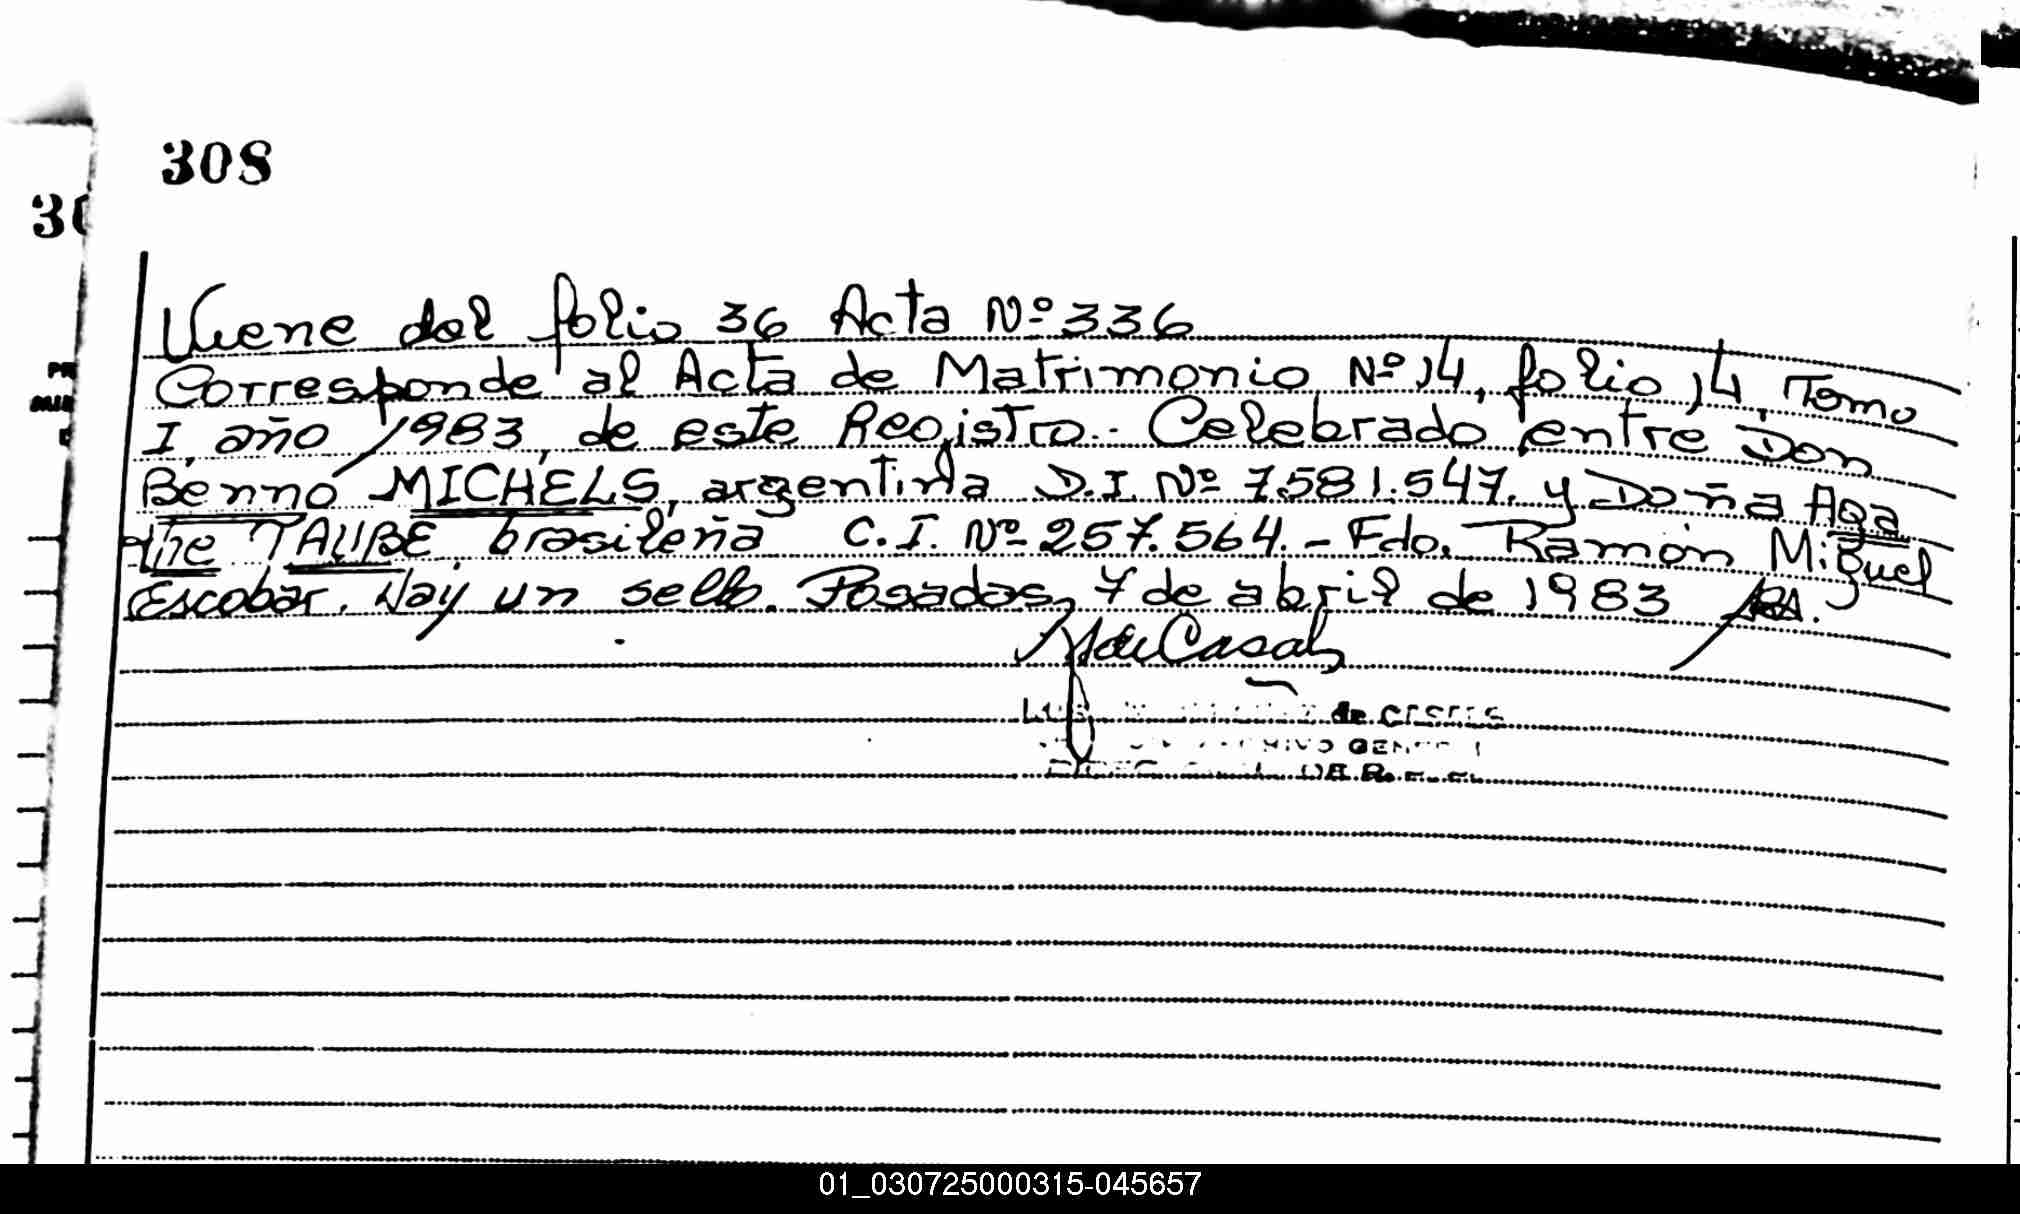 308
30
Viene del folio 36 Acta Nº 336
Corresponde al Acta de Matrimonio Nº 14, folio 14, Tomo
I, año 1983, de este Registro.- Celebrado entre Don
Benno MICHELS, argentina D.I. Nº 7.581.547. y Doña Aga
the TAUBE brasileña C.I. Nº 257.564.- Fdo. Ramón Miguel
Escobar. Hay un sello. Posadas, 7 de abril de 1983
de Casals
de
01_030725000315-045657